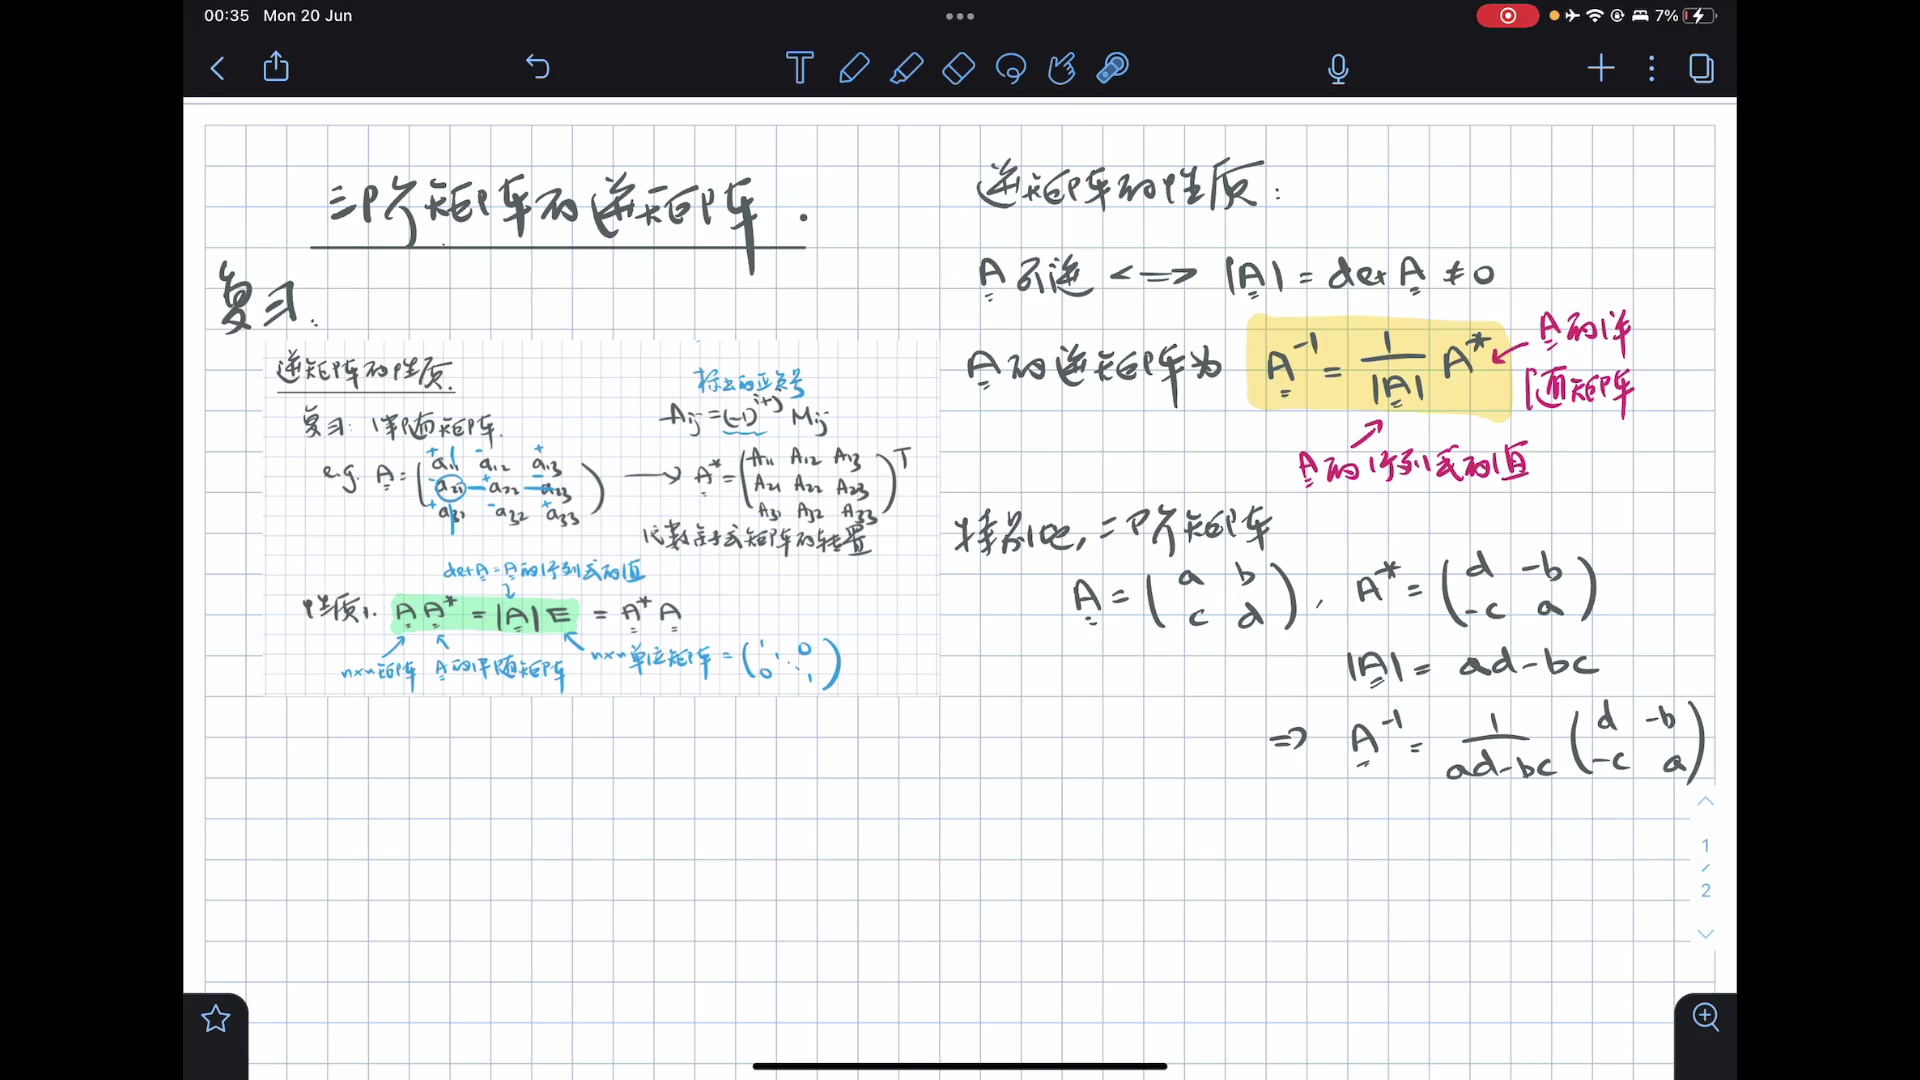 00:35 Mon 20 Jun
7%
三阶矩阵的逆矩阵.
复习.
逆矩阵的性质.
复习: 伴随矩阵.
标出的正负号
Aij = (-1)^{i+j} Mij
e.g. A = (a11 a12 a13
a21 a22 a23
a31 a32 a33) → A* = (A11 A12 A13
A21 A22 A23
A31 A32 A33)^T
代数余子式矩阵的转置
det A = A的行列式的值
性质1. A A* = |A| E = A* A
n×n矩阵 A的伴随矩阵 n×n单位矩阵 = (1 0
0 1)
逆矩阵的性质:
A 可逆 <=> |A| = det A ≠ 0
A 的逆矩阵为 A^{-1} = 1/|A| A*
A的伴随矩阵
A的行列式的值
特别地, 二阶矩阵
A = (a b
c d), A* = (d -b
-c a)
|A| = ad-bc
=> A^{-1} = 1/(ad-bc) (d -b
-c a)
1
/
2